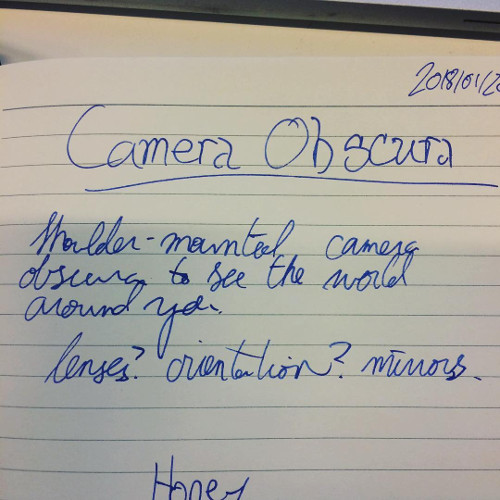 2018/01/2
Camera Obscura
Shoulder-mounted camera
obscura to see the world
around you.
lenses? orientation? mirrors.